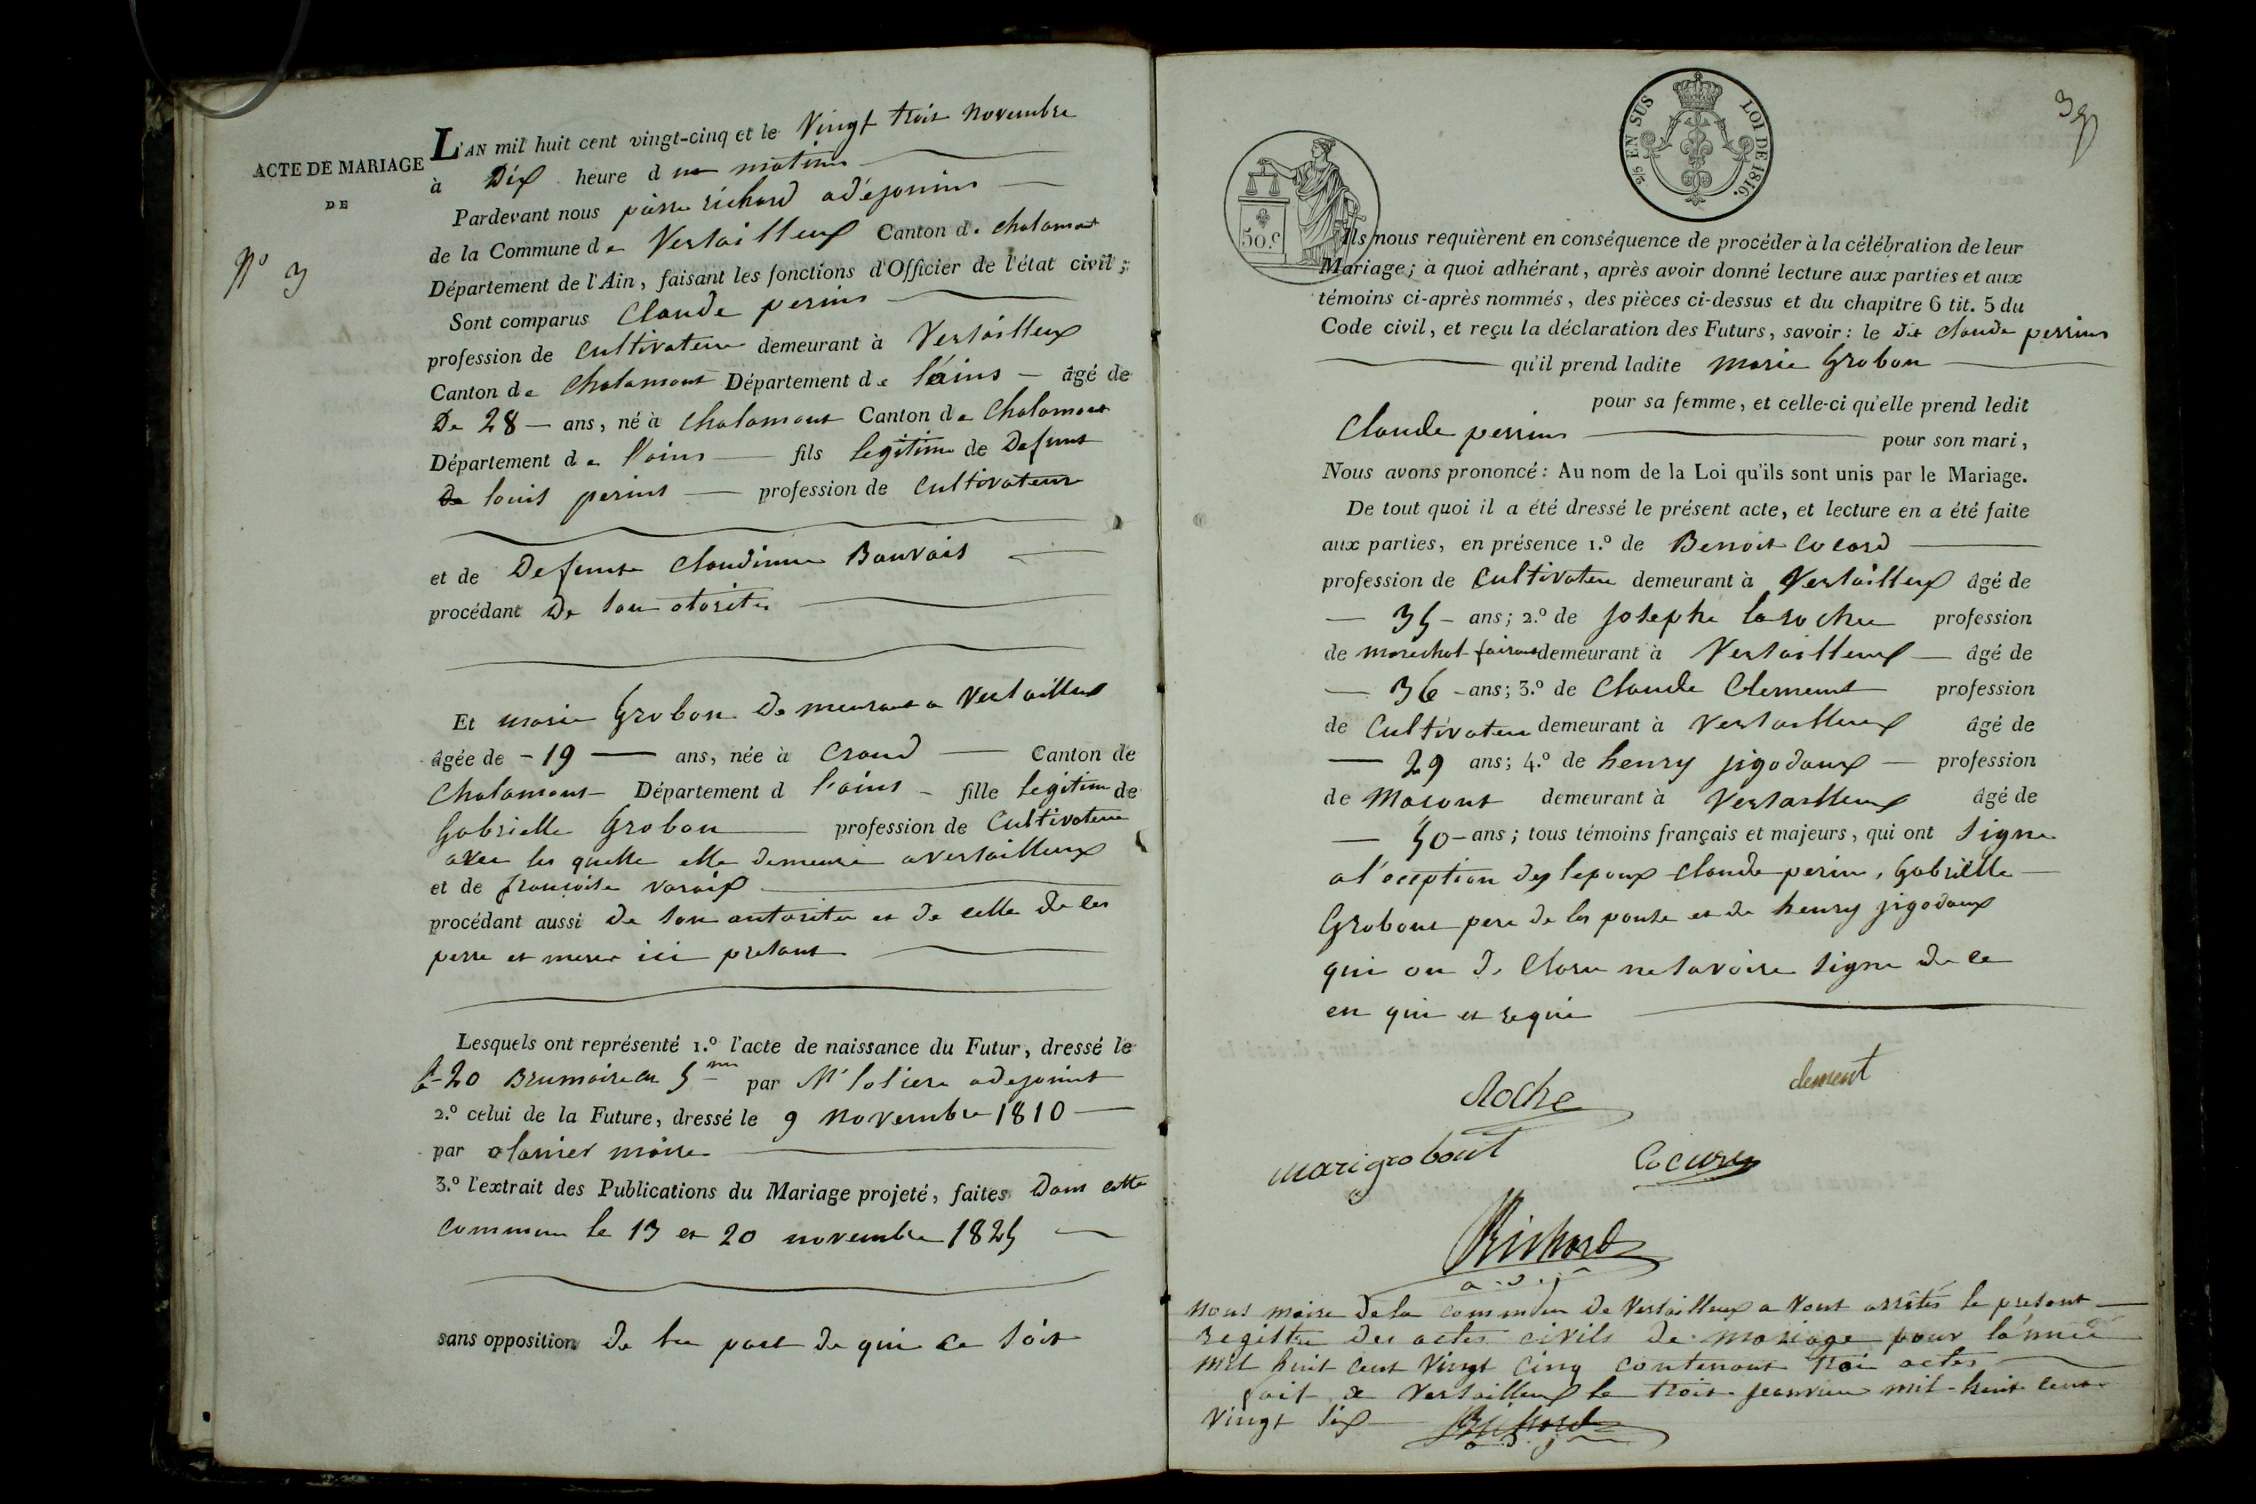 ACTE DE MARIAGE
DE
N.º 3
L'AN mil huit cent vingt-cinq et le Vingt trois Novembre
à Dix heure du matins
Pardevant nous pierre richard adéjoints
de la Commune de Versailleux Canton de chalamont
Département de l'Ain, faisant les fonctions d'Officier de l'état civil ;
Sont comparus Claude perins
profession de cultivateur demeurant à Versailleux
Canton de Chalamont Département de l'ains âgé de
De 28 ans, né à chalamont Canton de Chalamont
Département de l'ains fils legitime de Defunt
De louis perins profession de cultivateur
et de Defunte Claudinne Bauvais
procédant De son otorite
Et marie Grobon Demeurant a Versailleux
âgée de 19 ans, née à Crand Canton de
Chalamont Département d l'ains fille legitime de
Gabrielle Grobon profession de cultivateur
avec les quelle elle demeure a versailleux
et de francoise varaix
procédant aussi de son autorite et de celle de ces
perre et merre ici presant
Lesquels ont représenté 1.º l'acte de naissance du Futur, dressé le
le 20 Brumaire an 5 me par Mr loliere adejoint
2.º celui de la Future, dressé le 9 novembre 1810
par maire
3.º l'extrait des Publications du Mariage projeté, faites Dans cette
commune le 13 et 20 novembre 1825
sans opposition de la part de qui ce soit
38
25 EN SUS LOI DE 1816.
50 C
Ils nous requièrent en conséquence de procéder à la célébration de leur
Mariage ; à quoi adhérant, après avoir donné lecture aux parties et aux
témoins ci-après nommés, des pièces ci-dessus et du chapitre 6 tit. 5 du
Code civil, et reçu la déclaration des Futurs, savoir : le dit claude perrins
qu'il prend ladite marie Grobon
pour sa femme, et celle-ci qu'elle prend ledit
Claude perrins pour son mari,
Nous avons prononcé : Au nom de la Loi qu'ils sont unis par le Mariage.
De tout quoi il a été dressé le présent acte, et lecture en a été faite
aux parties, en présence 1.º de Benoit Cocard
profession de cultivateur demeurant à Versailleux âgé de
35 ans ; 2.º de Josephe laroche profession
de marechal fairant demeurant à Versailleux âgé de
36 ans ; 3.º de Claude Clement profession
de cultivateur demeurant à Versailleux âgé de
29 ans ; 4.º de henry jigodoux profession
de Masont demeurant à Versailleux âgé de
50 ans ; tous témoins français et majeurs, qui ont signe
a l'oception des lepoux claude perin, Gabrielle
Grobont pere de les pouse et de henry jigodoux
qui on de clare ne savoire signe de ce
en qui et requi
Roche
clement
mari grobont
Richard
adj
nous maire de la commune de Versailleux a vont arrêtés le presant
registre des actes civils de mariage pour lánnée
mil huit cent vingt cinq contenant troi actes
fait a Versailleux le trois jeanvier mil huit cent
vingt six Richard
adj